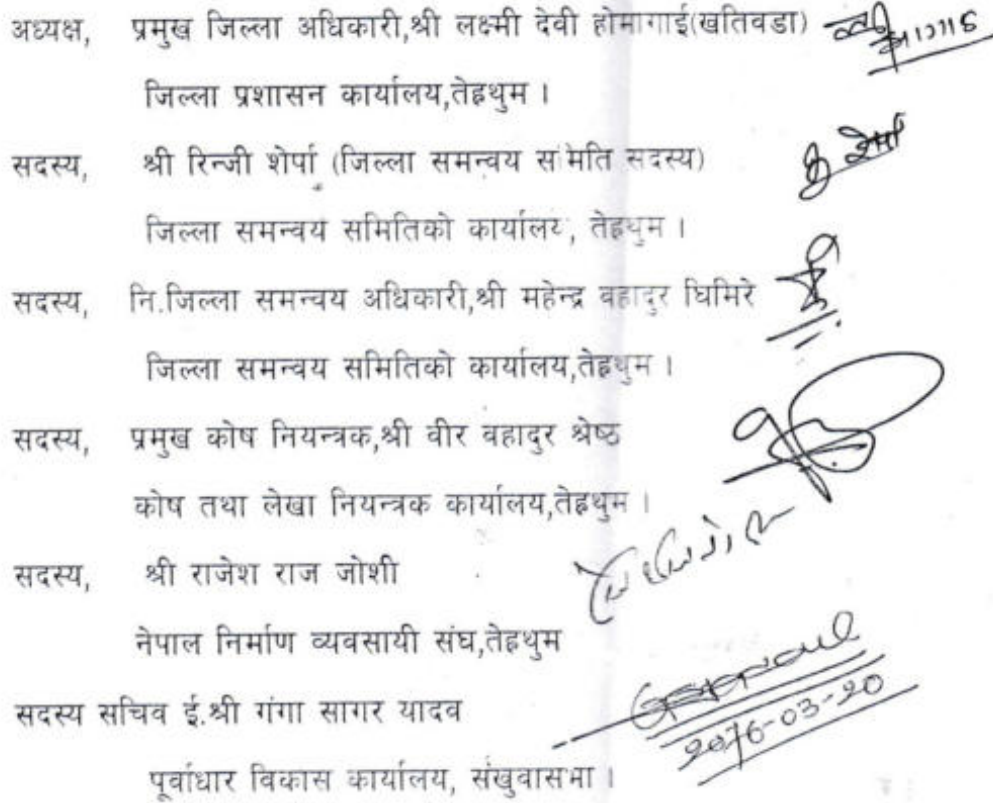 अध्यक्ष, प्रमुख जिल्ला अधिकारी,श्री लक्ष्मी देवी होमागाई(खतिवडा)
जिल्ला प्रशासन कार्यालय,तेह्रथुम ।
सदस्य, श्री रिन्जी शेर्पा (जिल्ला समन्वय समिति सदस्य)
जिल्ला समन्वय समितिको कार्यालय, तेह्रथुम ।
सदस्य, नि.जिल्ला समन्वय अधिकारी,श्री महेन्द्र वहादुर घिमिरे
जिल्ला समन्वय समितिको कार्यालय,तेह्रथुम ।
सदस्य, प्रमुख कोष नियन्त्रक,श्री वीर वहादुर श्रेष्ठ
कोष तथा लेखा नियन्त्रक कार्यालय,तेह्रथुम ।
सदस्य, श्री राजेश राज जोशी
नेपाल निर्माण व्यवसायी संघ,तेह्रथुम
सदस्य सचिव ई.श्री गंगा सागर यादव
2076-03-20
पूर्वाधार विकास कार्यालय, संखुवासभा ।